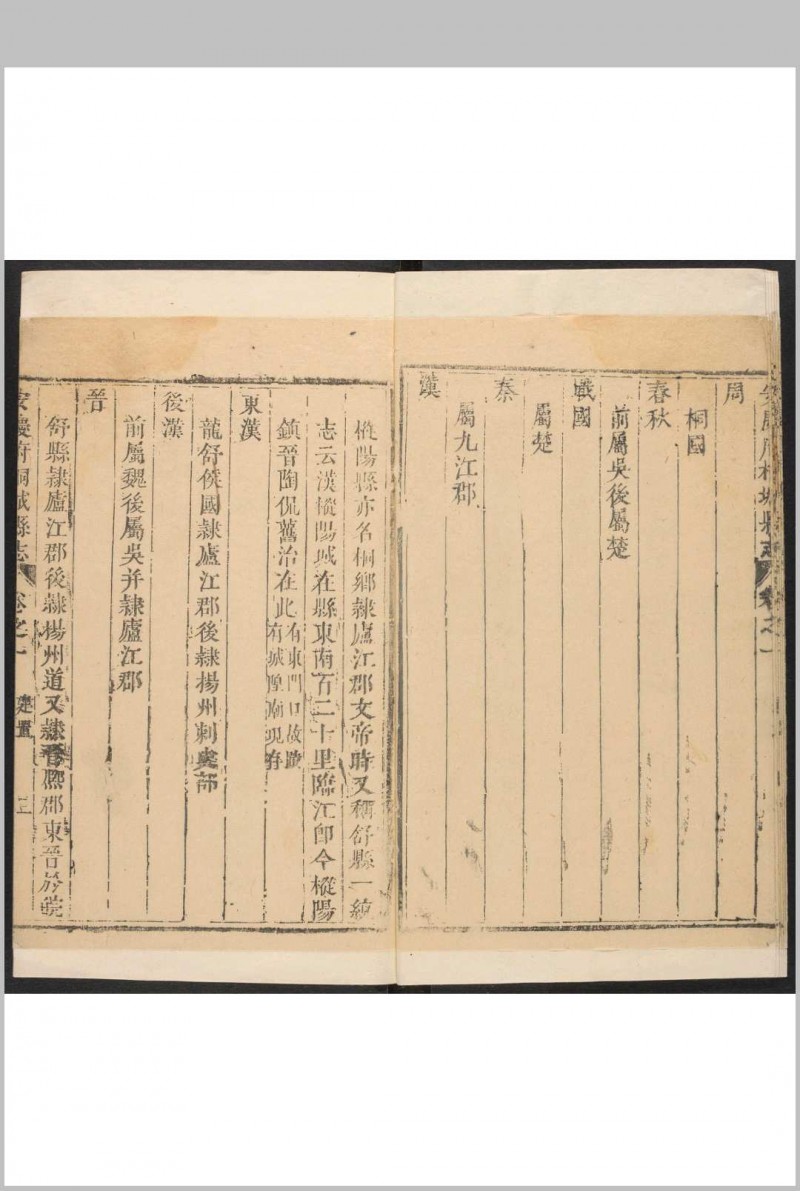 周
桐國
春秋
前屬吳後屬楚
戰國
屬楚
秦
屬九江郡
漢
樅陽縣亦名桐鄉隷廬江郡文帝時又稱舒縣一統
志云漢樅陽城在縣東南百二十里臨江卽今樅陽
鎮晉陶侃舊治在此有東門口故蹟
有城隍廟現存
東漢
龍舒侯國隷廬江郡後隷揚州刺史部
後漢
前屬魏後屬吳并隷廬江郡
晉
舒縣隷廬江郡後隷揚州道又隷晉熙郡東晉於皖
安慶府桐城縣志 卷之一 建置 三